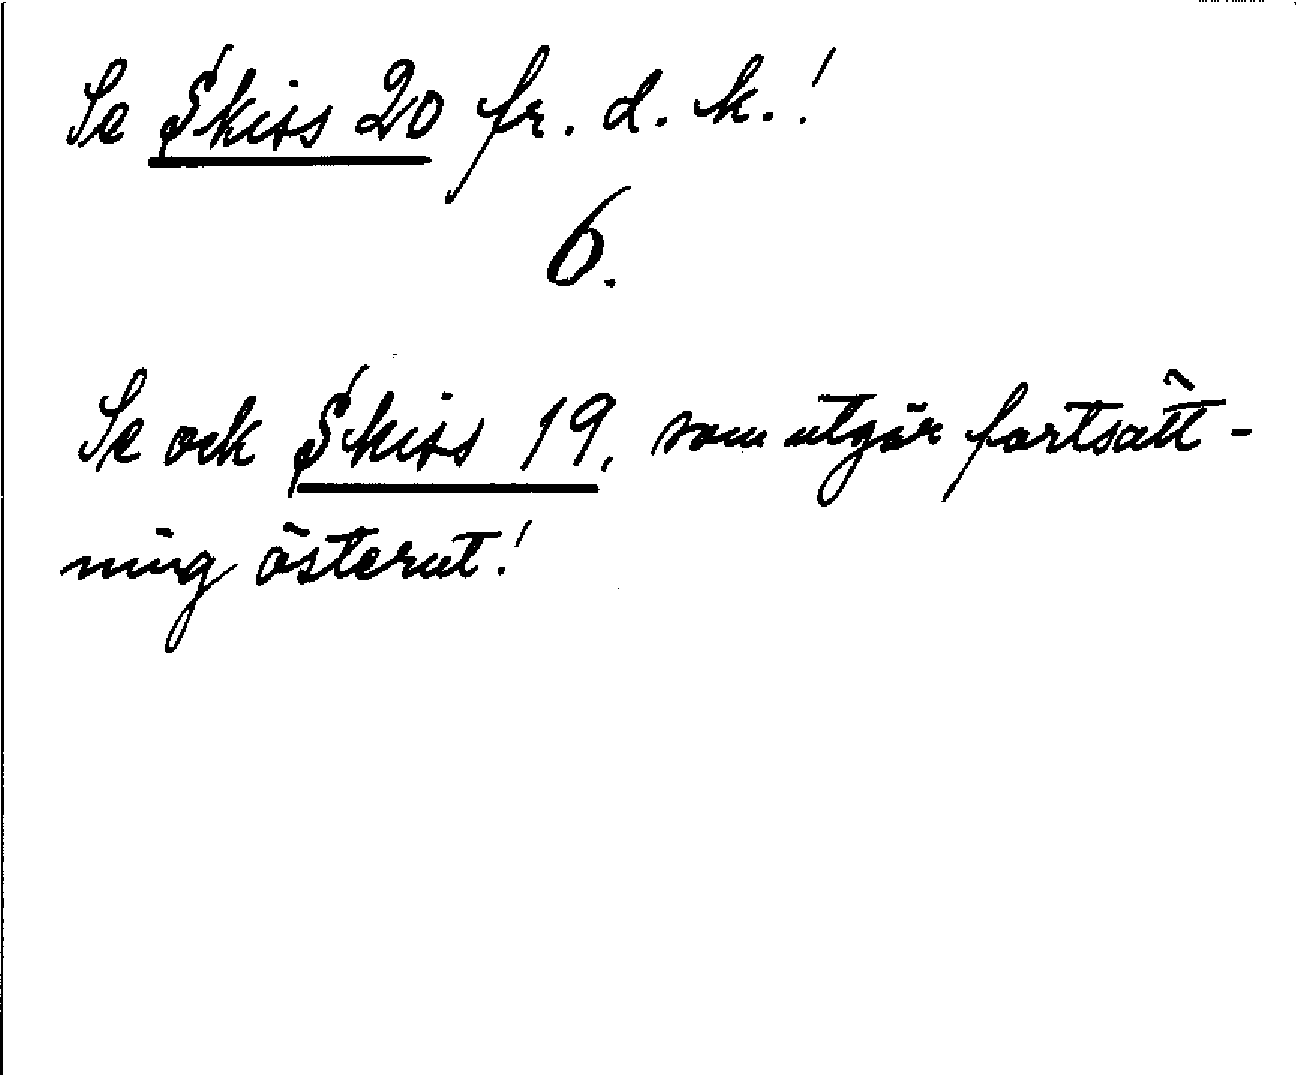 Se Skiss 20 fr. d. k.!
6.
Se ock Skiss 19, som utgör fortsätt-
ning österut!